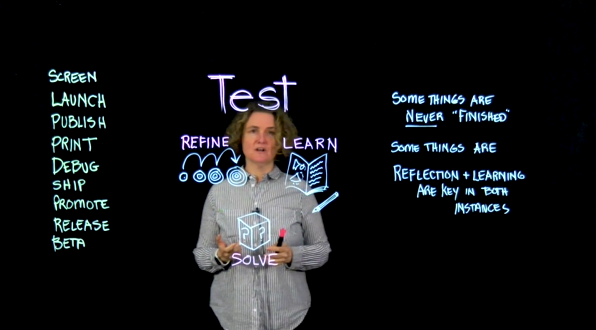 SCREEN
LAUNCH
PUBLISH
PRINT
DEBUG
SHIP
PROMOTE
RELEASE
BETA
Test
REFINE
LEARN
? ?
SOLVE
SOME THINGS ARE
NEVER "FINISHED"
SOME THINGS ARE
REFLECTION + LEARNING
ARE KEY IN BOTH
INSTANCES